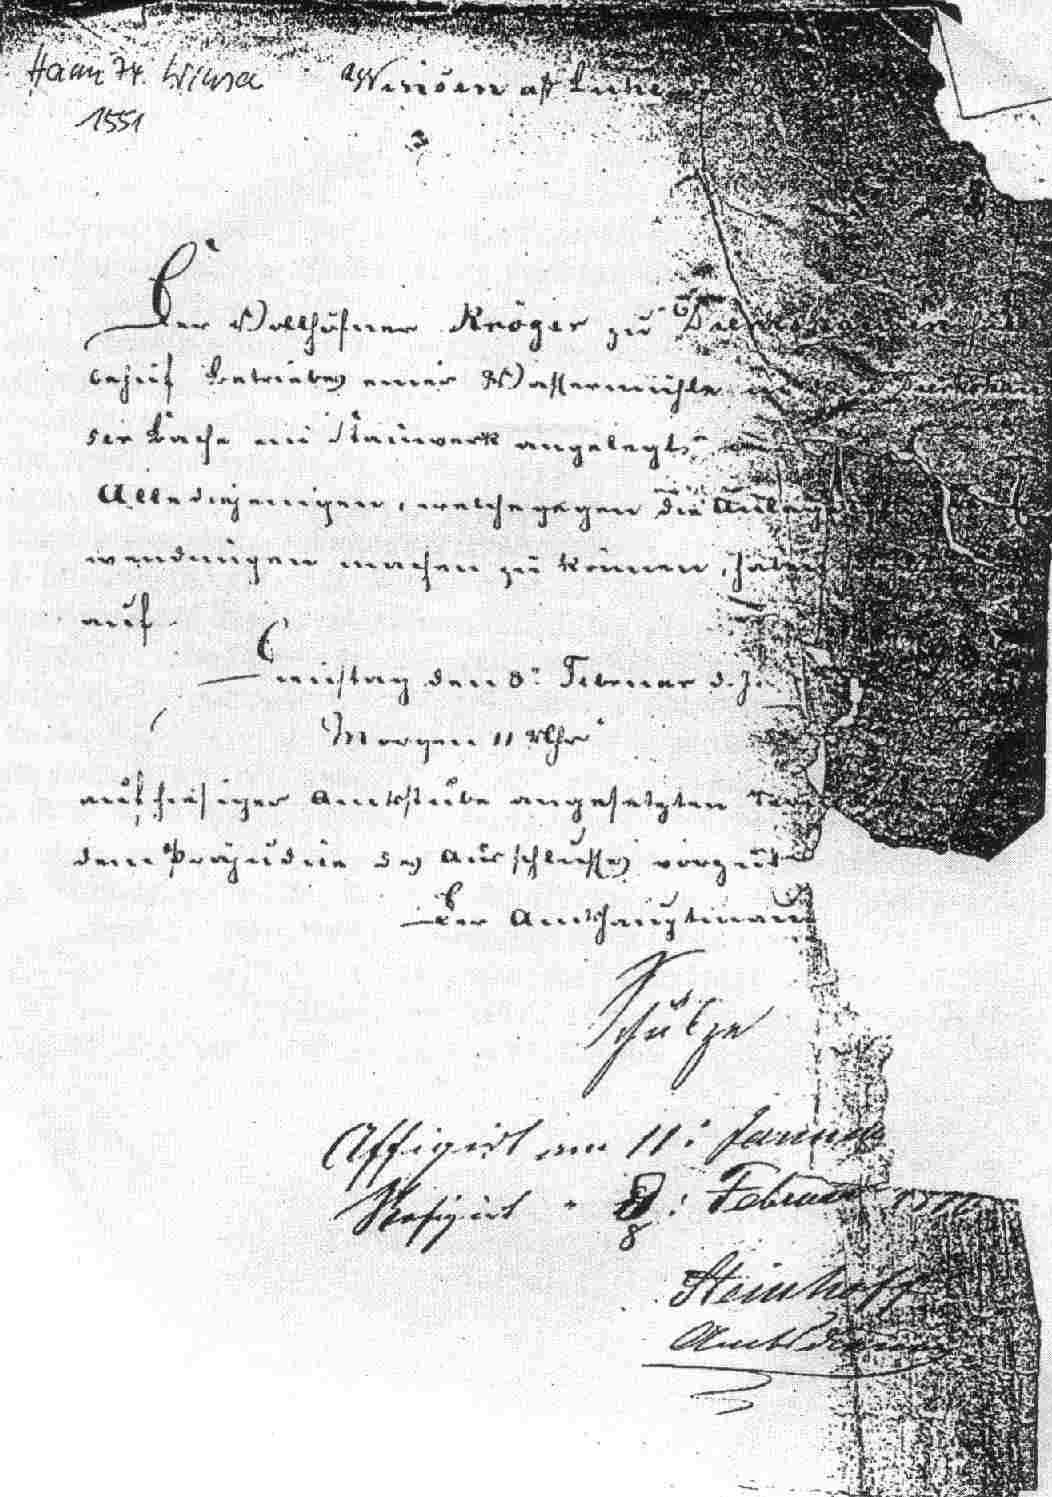 Hann 74. Winsen
1551
Winsen a/Luhe
Der Vollhöfner Kröger zu
behuf Betriebes einer Wassermühle
der Bache ein Stauwerk angelegt,
Alle diejenigen, welche gegen die Anlage
wendungen machen zu können, haben
auf
Dienstag den 8. Februar d. J.
Morgen 11 Uhr
auf hiesiger Amtsstube angesetzten
dem Präjudize des Ausschlusses
Der Amtshauptmann
Schulze
Affigirt am 11: Januar
Refigirt " 8: Februar
8
Steinhoff
Amtsdiener